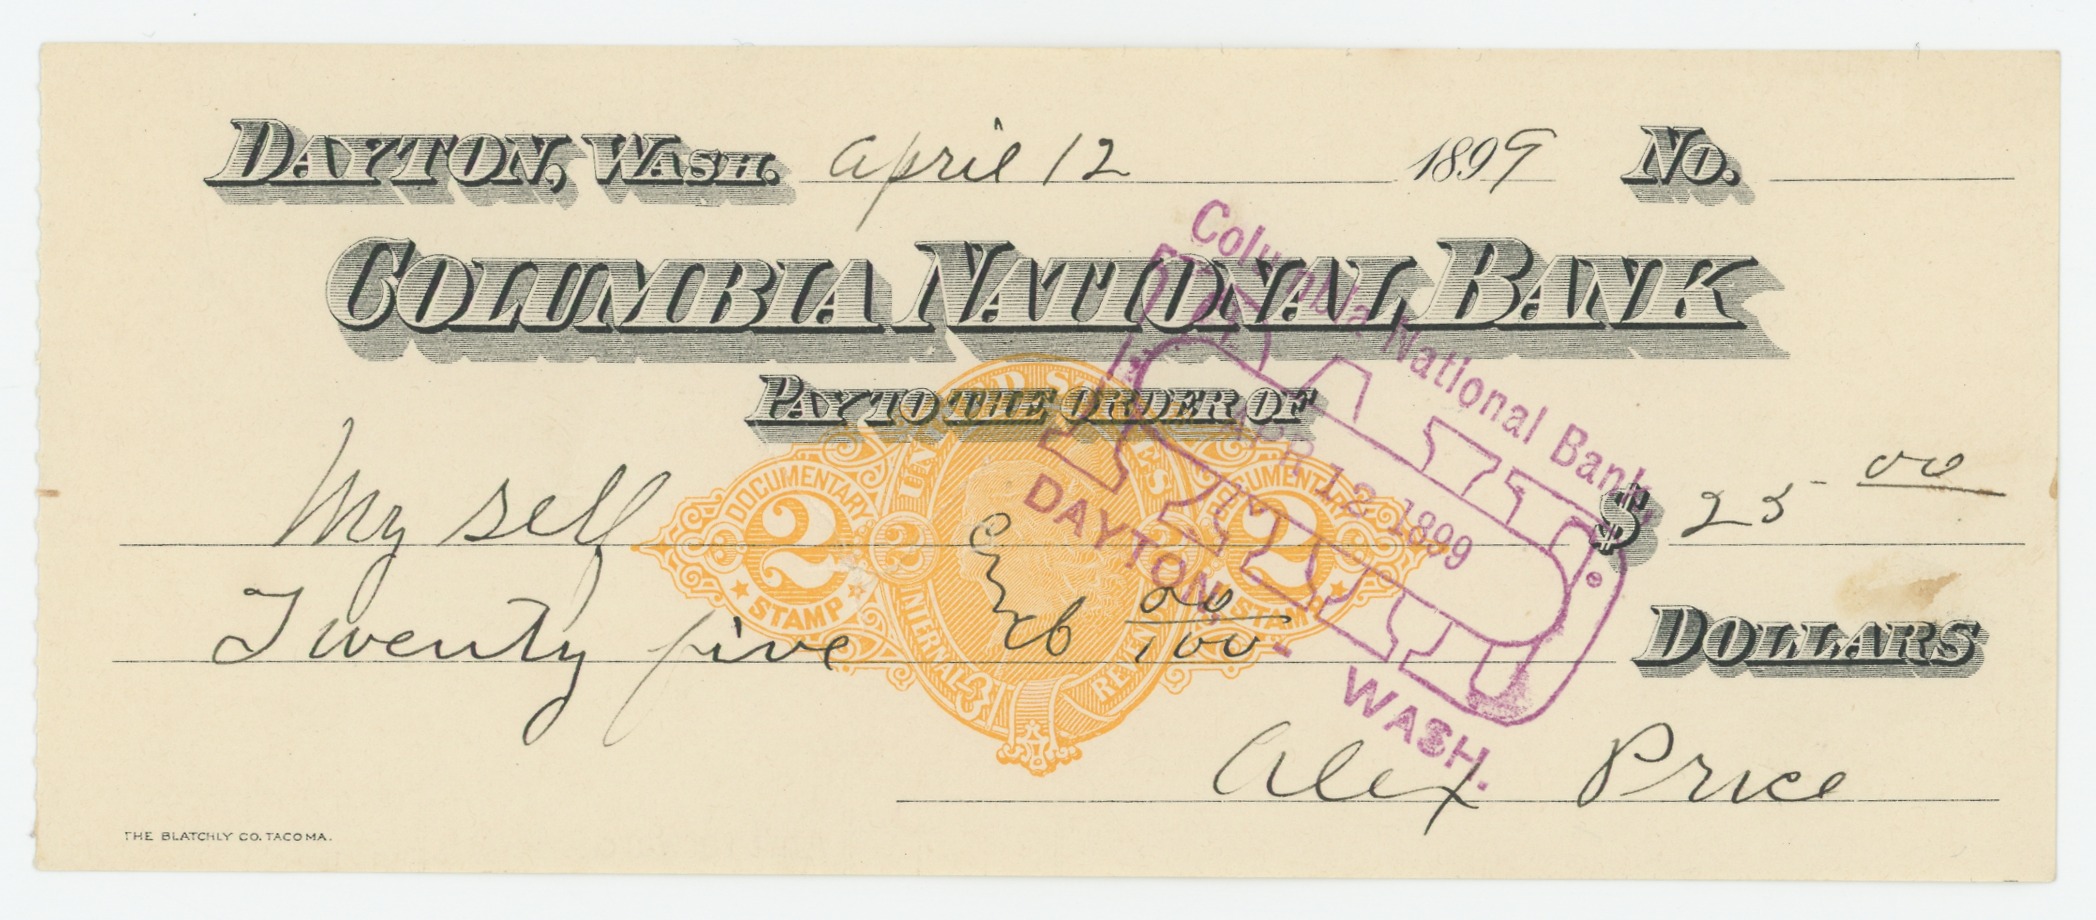 DAYTON, WASH. April 12 1899 No.
COLUMBIA NATIONAL BANK
PAY TO THE ORDER OF
My self $ 25 00
Twenty five 00/100 DOLLARS
Alex Price
THE BLATCHLY CO. TACOMA.
UNITED STATES
INTERNAL REVENUE
DOCUMENTARY
2
STAMP
2
DOCUMENTARY
2
STAMP
Columbia National Bank,
PAID
APR 12 1899
DAYTON, - WASH.